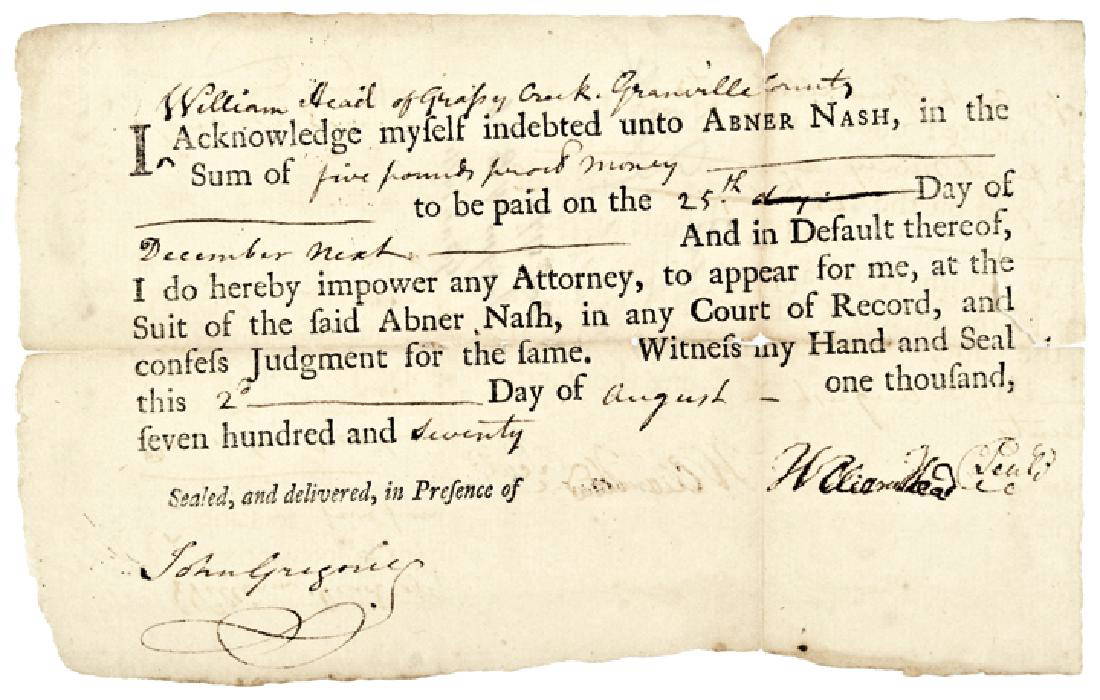 William Head of Graſsy Creek. Granville County
I ^ Acknowledge myſelf indebted unto ABNER NASH, in the
Sum of five pounds procl money
to be paid on the 25.th day Day of
December next. And in Default thereof,
I do hereby impower any Attorney, to appear for me, at the
Suit of the ſaid Abner Naſh, in any Court of Record, and
confeſs Judgment for the ſame. Witneſs my Hand and Seal
this 2d Day of August one thouſand,
ſeven hundred and Seventy
William Head (Seal)
Sealed, and delivered, in Preſence of
John Gregorie